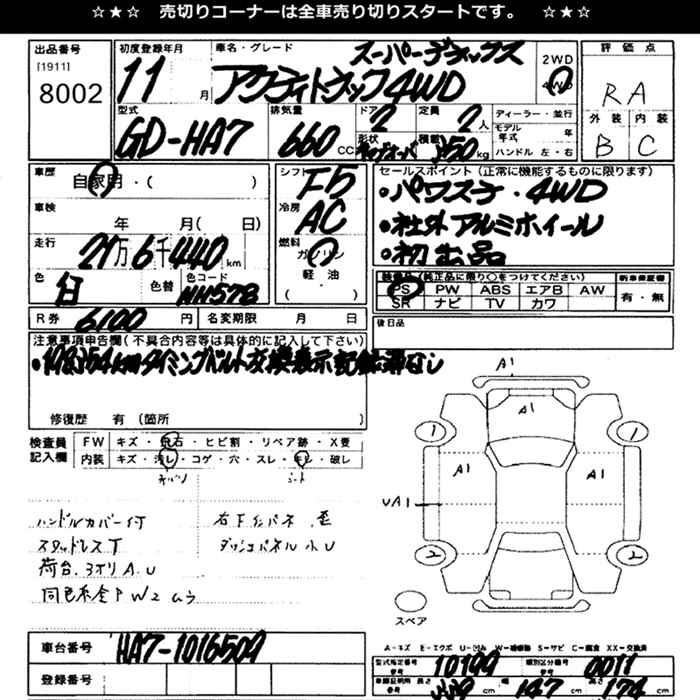 ☆★☆ 売切りコーナーは全車売り切りスタートです。 ☆★☆
出品番号
[1911]
8002
初度登録年月
11 月
車名・グレード
スーパーデラックス
アクティトラック4WD
2WD
4WD
評価点
RA
外装 内装
B C
型式
GD-HA7
排気量
660 CC
ドア
2
形状
定員
2 人
積載
350 kg
ディーラー・並行
モデル年式 年
ハンドル 左・右
車歴
自家用・( )
車検
年 月( 日)
走行
21万6千440 km
色
白
色替
色コード
NH578
シフト
F5
冷房
AC
燃料
ガソリン
軽・油
( )
セールスポイント(正常に機能するものに限ります)
・パワステ・4WD
・社外アルミホイール
・初出品
装備品(純正品に限り○をつけてください)
新車保証書
PS PW ABS エアB AW
SR ナビ TV カワ
有・無
R券 6100 円
名変期限 月 日
後日品
注意事項申告欄(不具合内容等は具体的に記入して下さい)
タイミングベルト交換表示記録簿なし
修復歴 有(箇所 )
検査員記入欄
FW キズ・飛石・ヒビ割・リペア跡・X要
内装 キズ・汚レ・コゲ・穴・スレ・キレ・破レ
シート
ハンドルカバー付
スタッドレスT
荷台.3オリA.U
同色系全PW2ムラ
右下インパネ.歪
ダッシュパネル小U
A1
A1
1
1
A1
A1
UA1
2
2
スペア
A-キズ E-エクボ U-凹み W-補修跡 S-サビ C-腐食 XX-交換済
車台番号
HA7-1016509
登録番号
型式指定番号
参考
10199
類別区分番号
参考
0011
車輌証明用 長さ
参考
cm
幅
147 cm
高さ
174 cm